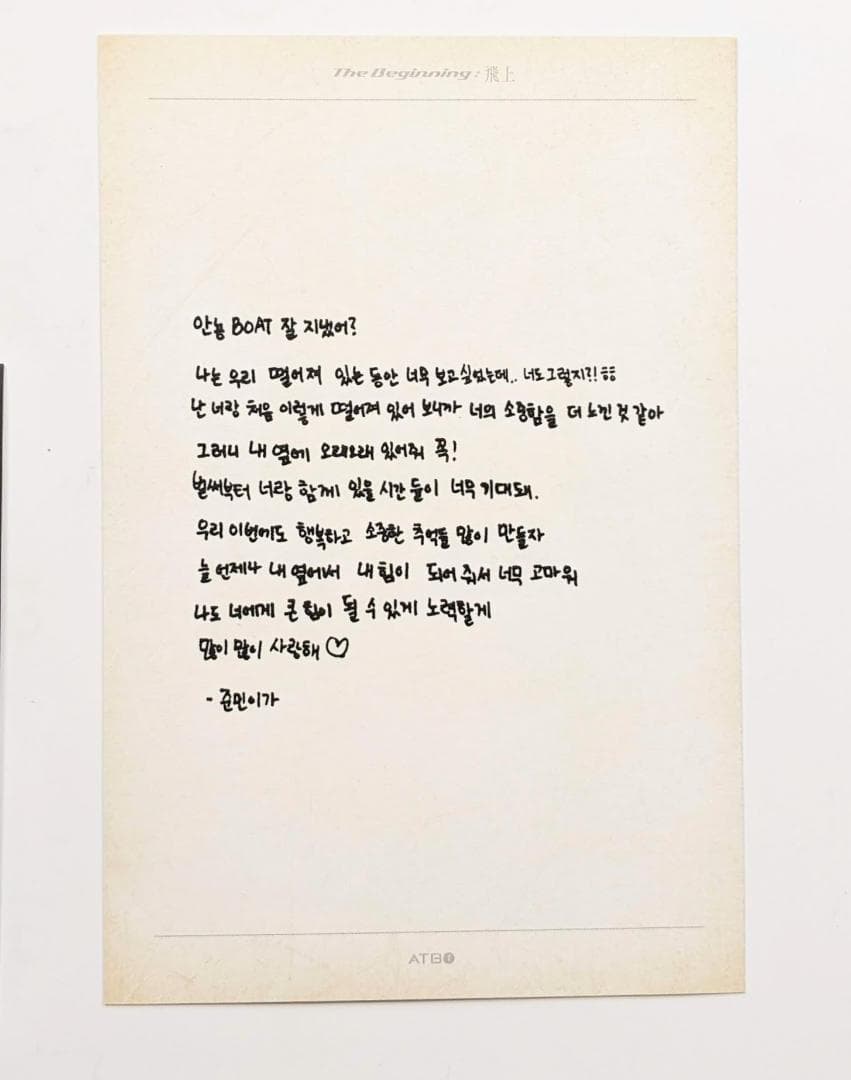 The Beginning : 飛上
안뇽 BOAT 잘 지냈어?
나는 우리 떨어져 있는 동안 너무 보고싶었는데.. 너도 그렇지?! ㅎㅎ
난 너랑 처음 이렇게 떨어져 있어 보니까 너의 소중함을 더 느낀 것 같아
그러니 내 옆에 오래오래 있어줘 꼭!
벌써부터 너랑 함께 있을 시간들이 너무 기대돼.
우리 이번에도 행복하고 소중한 추억들 많이 만들자
늘 언제나 내 옆에서 내 힘이 되어 줘서 너무 고마워
나도 너에게 큰 힘이 될 수 있게 노력할게
많이 많이 사랑해 ♡
- 준민이가
ATBO